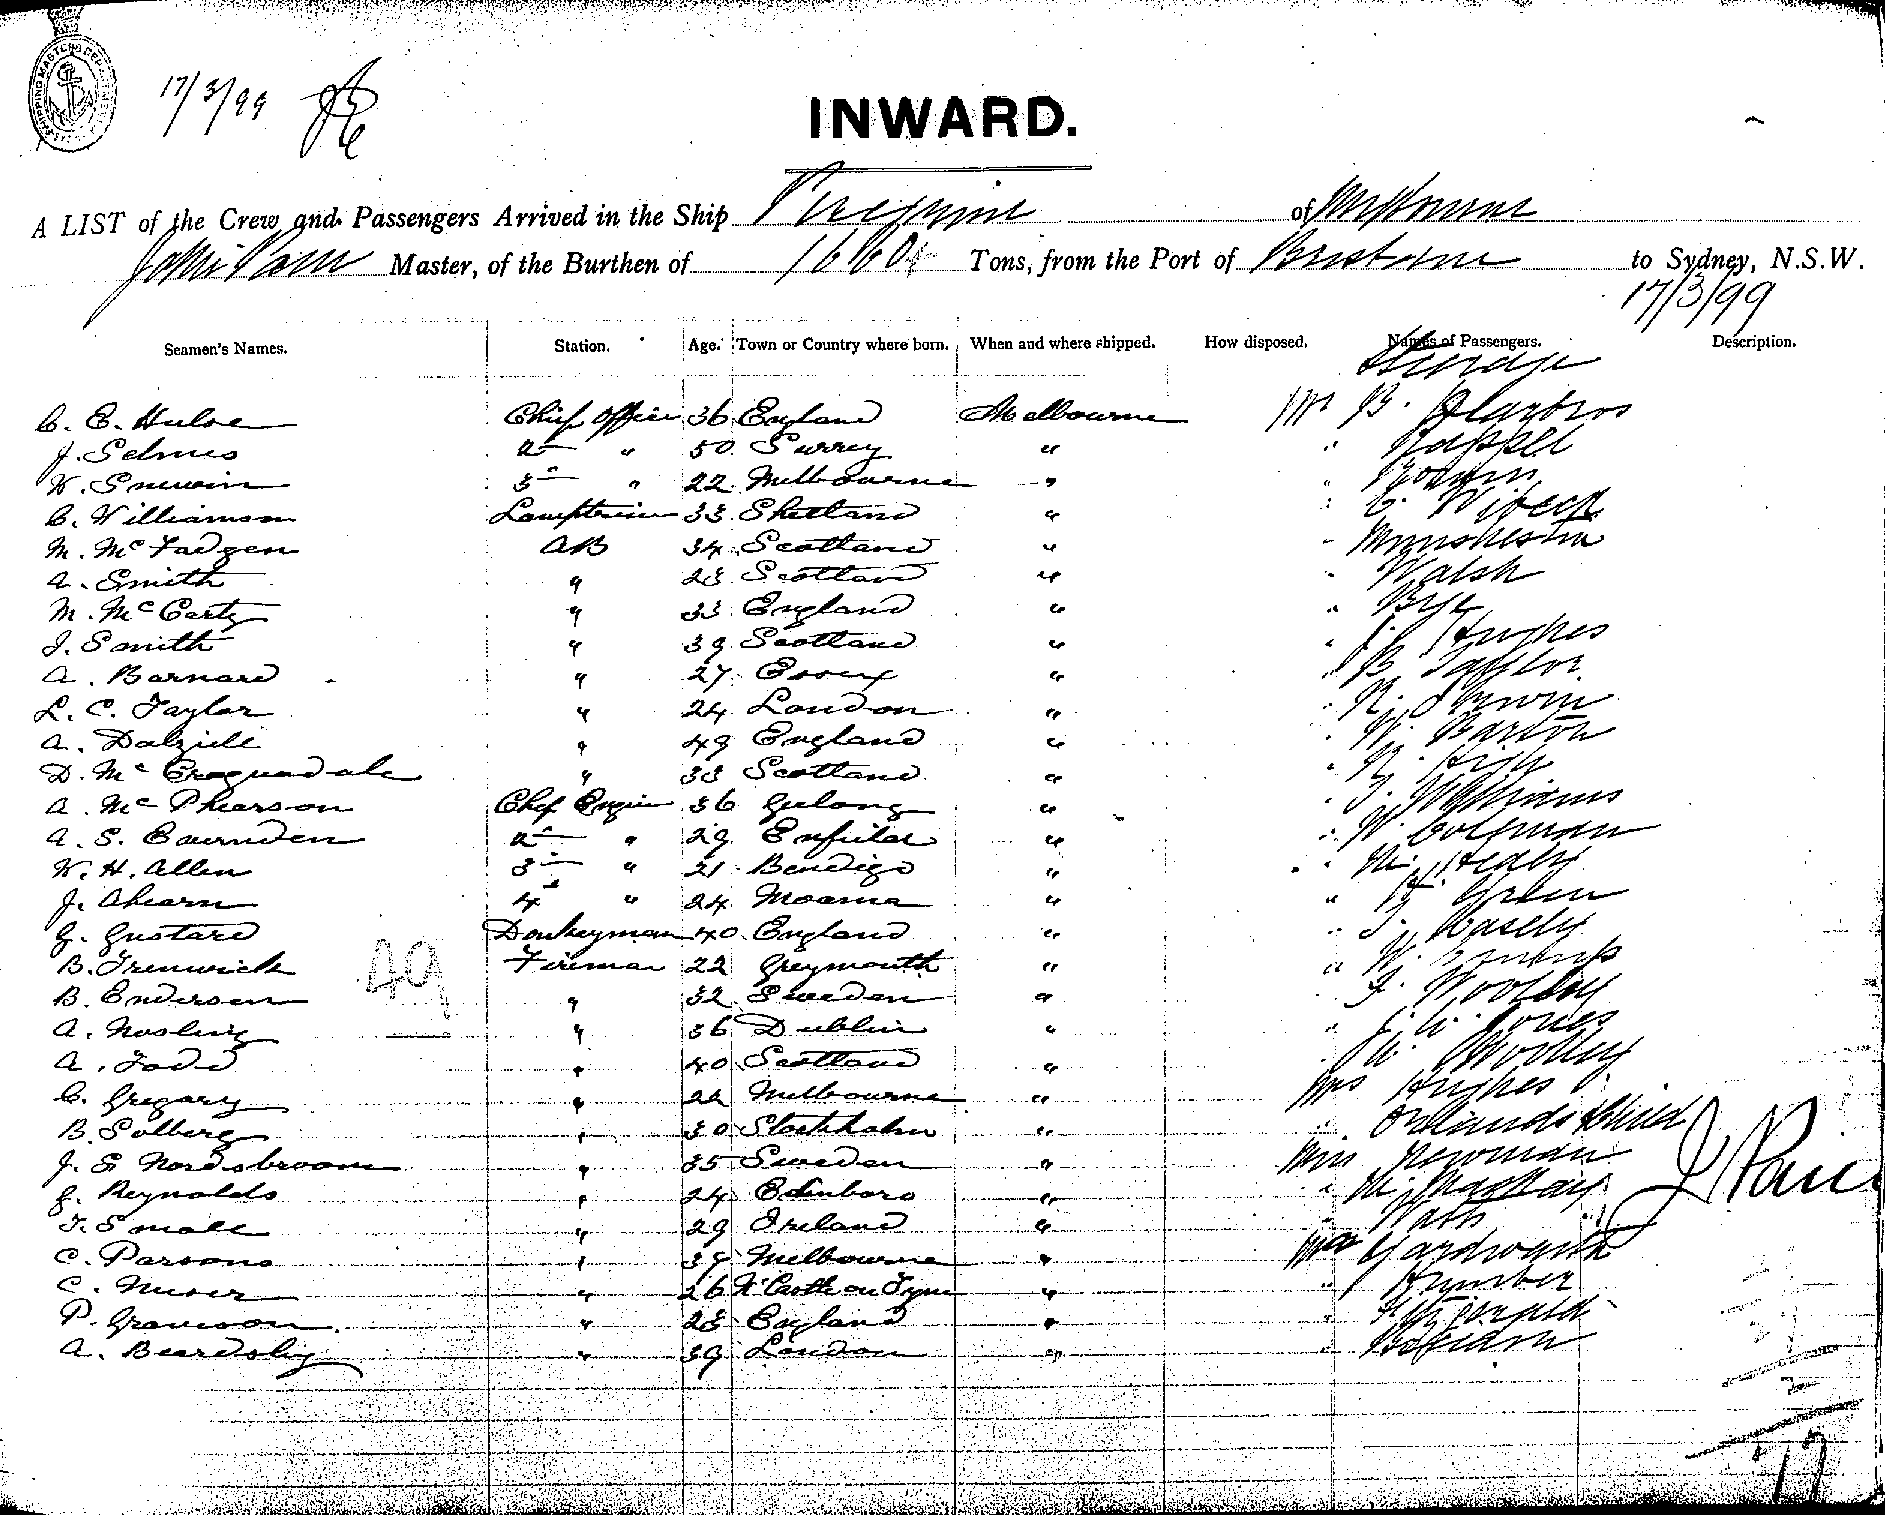 17/3/99
INWARD.
A LIST of the Crew and Passengers Arrived in the Ship Peregrine of Melbourne
John Pain Master, of the Burthen of 1660 Tons, from the Port of Brisbane to Sydney, N.S.W.
17/3/99
Seamen's Names. Station. Age. Town or Country where born. When and where shipped. How disposed. Names of Passengers. Description.
Steerage
C. E. Hulse Chief Officer 36 England Melbourne Mr B.
J. Selmes 2nd " 50 Surrey " "
W. 3rd " 22 Melbourne " "
C. Williamson Lamptrimr 33 Shetland " "
M. McFadgen AB 34 Scotland " "
A. Smith " 23 Scotland " " Walsh
M. McCarty " 33 England " " Bye
J. Smith " 39 Scotland " " J. Hughes
A. Barnard " 27 Essex " " B. Taylor
L. C. Taylor " 24 London " " R. Irwin
A. Dalziell " 49 England " " W. Barton
D. McCroquodale " 33 Scotland " "
A. McPhearson Chief Engin 36 Geelong " " J. Williams
A. S. Cournden 2nd " 29 Enfield " " W. Coleman
W. H. Allen 3rd " 21 Bendigo " " M. Healy
J. Ahearn 4th " 24 Moama " " Green
G. Gustard Donkeyman 40 England " "
B. Trenwick Fireman 22 Greymouth " " W.
49
B. Endersen " 32 Sweden " J. Woolley
A. Nosling " 36 Dublin " " J. W. Jones
A. Todd " 40 Scotland " " Woolley
C. Gregory " 22 Melbourne " Mrs Hughes
B. Solberg " 30 Stockholm " " & Child
J. E. Nordsbroom " 35 Sweden " Miss Newman
G. Reynolds " 24 Edinboro " " M. MacKay
J. Pain
T. Small " 29 Ireland " "
C. Parsons " 39 Melbourne "
C. " 26 N'Castle on Tyne " "
P. " 23 England " " Fitzgerald
A. Beardsley " 39 London " "